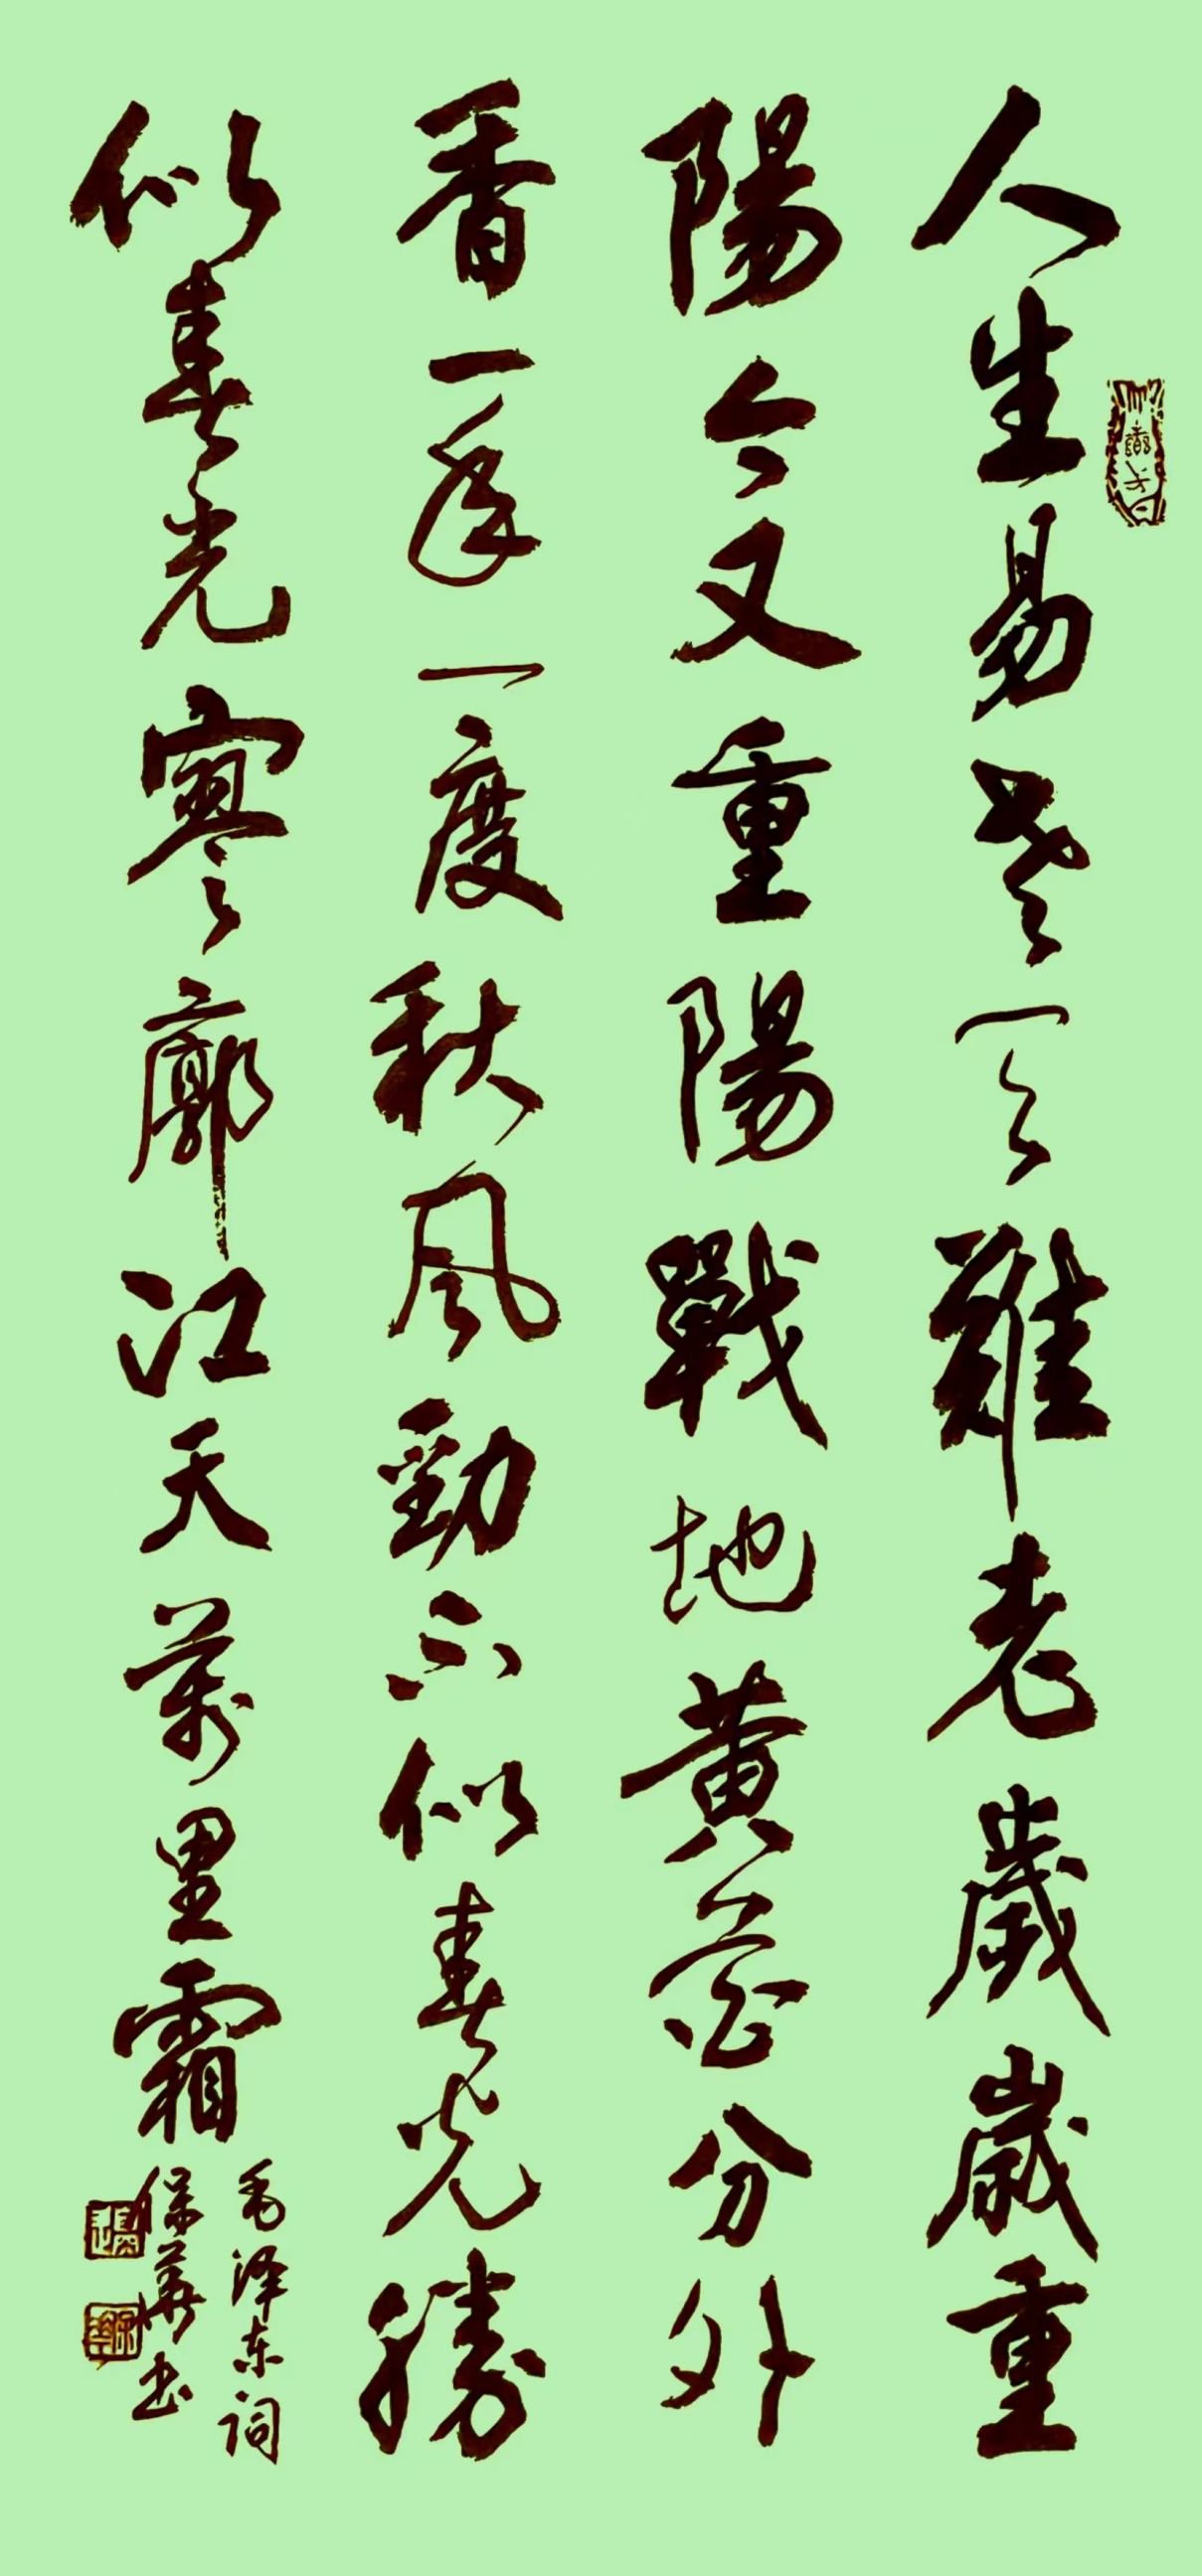 人生易老天難老歲嵗重
陽今又重陽戰地黄花分外
香一年一度秋風勁不似春光勝
似春光寥廓江天萬里霜
毛泽东词
保華书